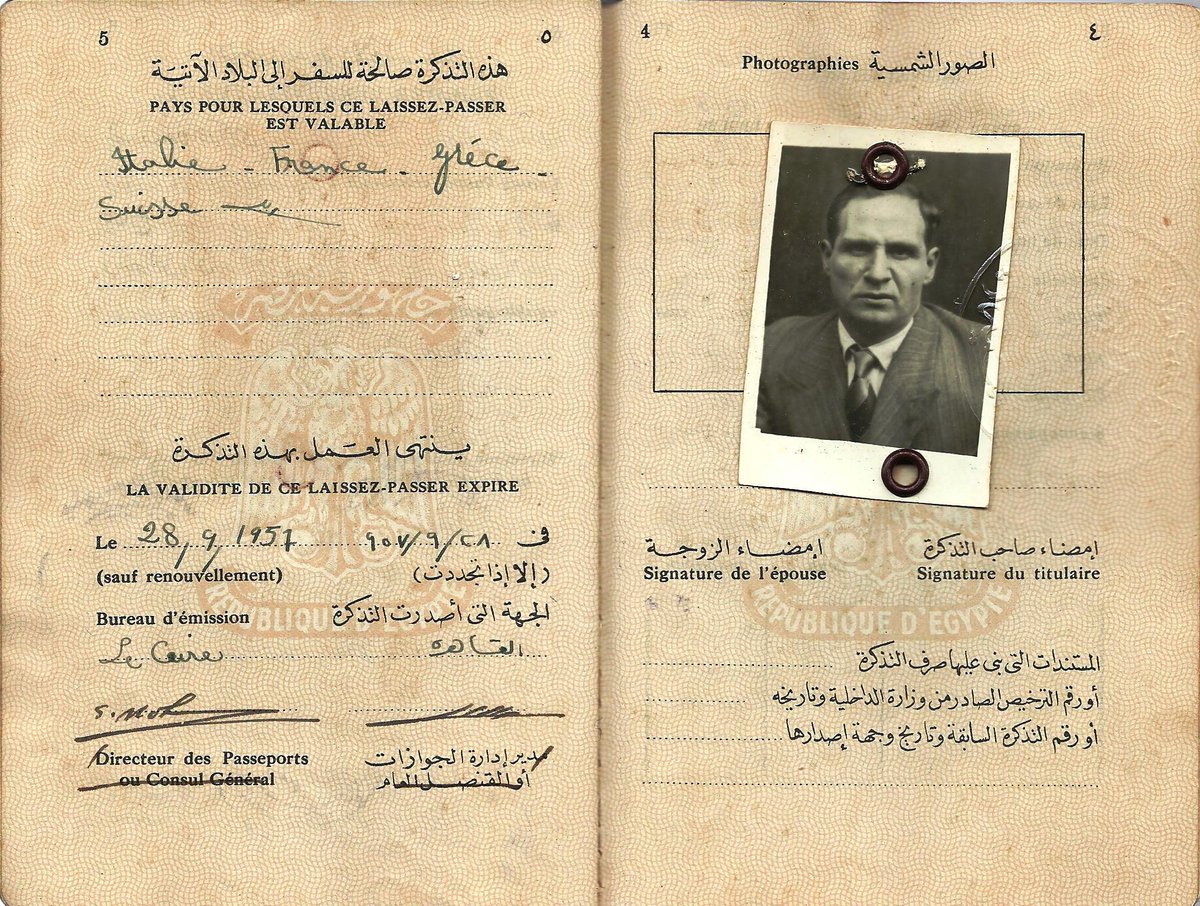 5 ٥
هذه التذكرة صالحة للسفر إلى البلاد الآتية
PAYS POUR LESQUELS CE LAISSEZ-PASSER
EST VALABLE
Italie - France - Gréce -
Suisse
جمهورية مصر
ينتهى العمل بهذه التذكرة
LA VALIDITE DE CE LAISSEZ-PASSER EXPIRE
Le 28, 9, 1957 فى ٩٥٧/٩/٢٨
(sauf renouvellement) (إلا إذا تجددت)
Bureau d'émission الجهة التى أصدرت التذكرة
REPUBLIQUE D'EGYPTE
Le Caire القاهرة
Directeur des Passeports مدير إدارة الجوازات
ou Consul Général أو القنصل العام
4 ٤
Photographies الصور الشمسية
إمضاء الزوجة إمضاء صاحب التذكرة
Signature de l'épouse Signature du titulaire
REPUBLIQUE D'EGYPTE
المستندات التى بنى عليها صرف التذكرة
أو رقم الترخيص الصادر من وزارة الداخلية وتاريخه
أو رقم التذكرة السابقة وتاريخ وجهة إصدارها